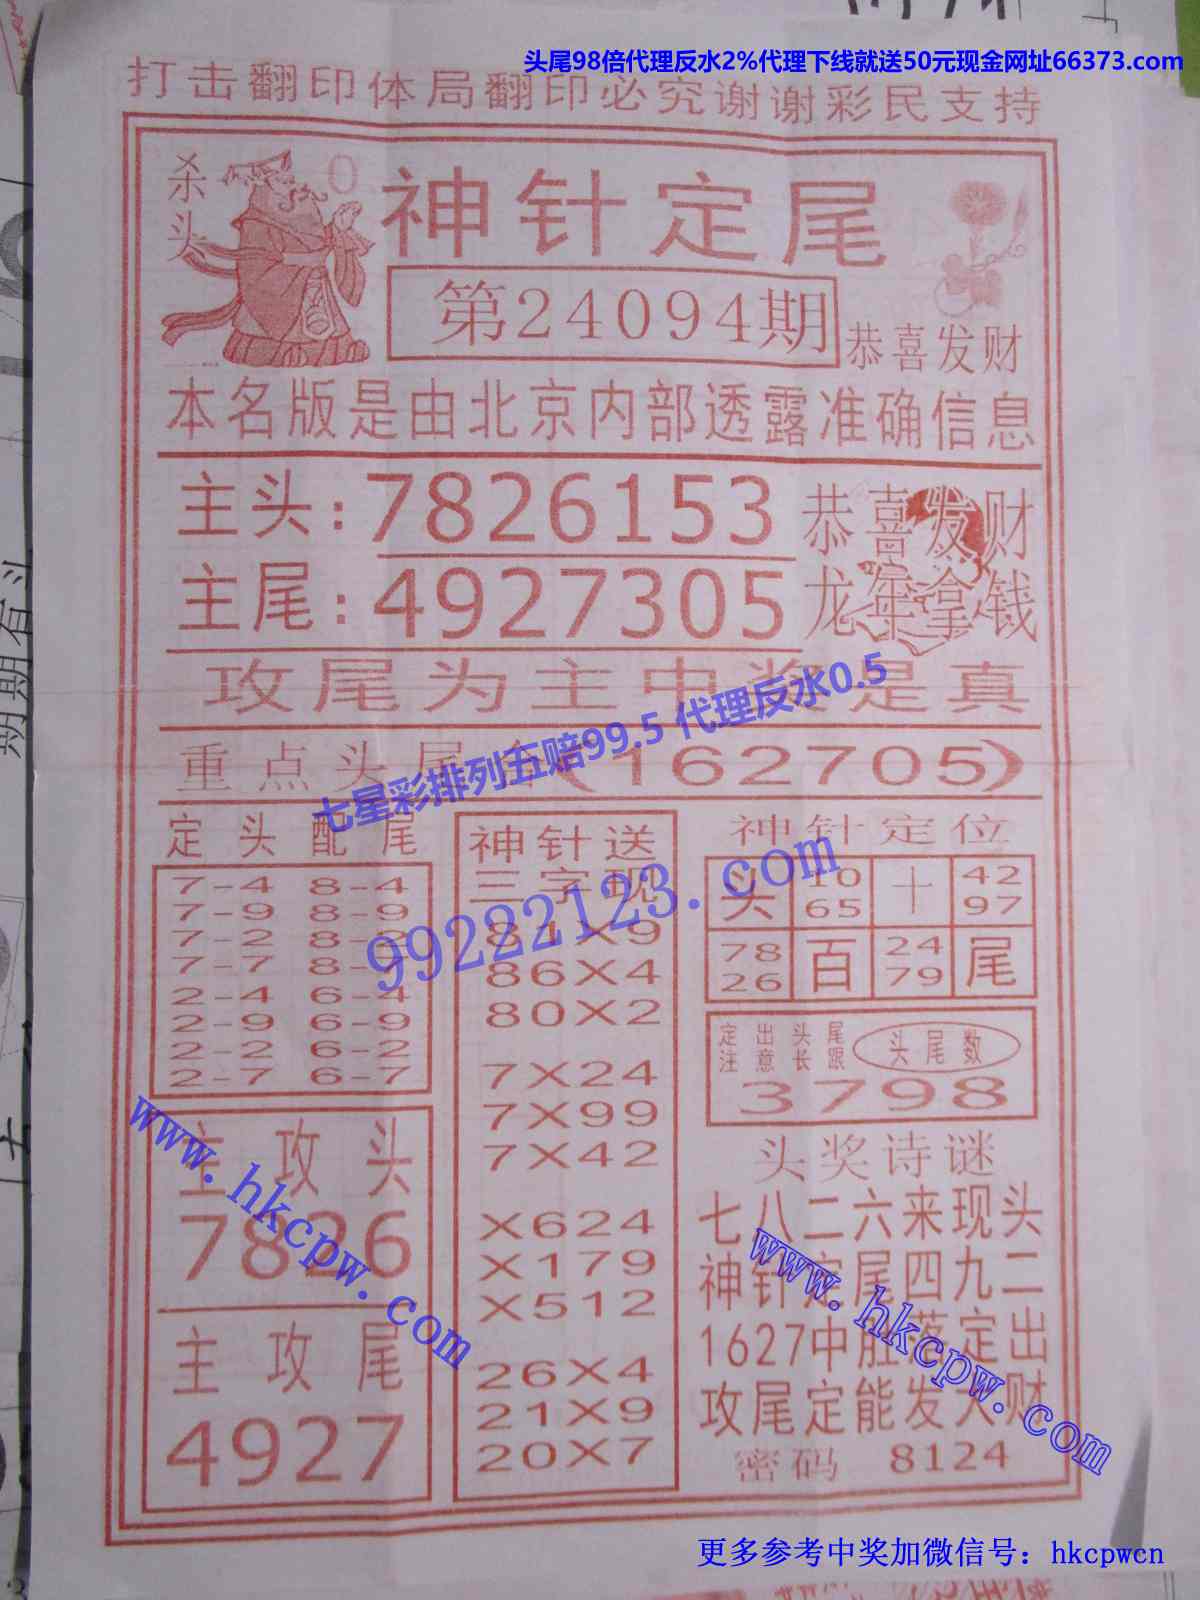 头尾98倍代理反水2%代理下线就送50元现金网址66373.com
打击翻印体局翻印必究谢谢彩民支持
杀头
0
神针定尾
第24094期
恭喜发财
本名版是由北京内部透露准确信息
主头:7826153
恭喜发财
主尾:4927305
龙年拿钱
攻尾为主中奖是真
七星彩排列五赔99.5 代理反水0.5
重点头尾 (162705)
定头配尾
7-4 8-4
7-9 8-9
7-2 8-2
7-7 8-7
2-4 6-4
2-9 6-9
2-2 6-2
2-7 6-7
神针送
三字现
81X9
86X4
80X2
7X24
7X99
7X42
X624
X179
X512
26X4
21X9
20X7
神针定位
头 10 十 42
65 97
78 百 24 尾
26 79
99222123.com
定出头尾
注意长跟
头尾数
3798
主攻头
7826
主攻尾
4927
www.hkcpw.com
头奖诗谜
七八二六来现头
神针定尾四九二
1627中胆落定出
攻尾定能发大财
www.hkcpw.com
密码 8124
更多参考中奖加微信号：hkcpwcn
期期有